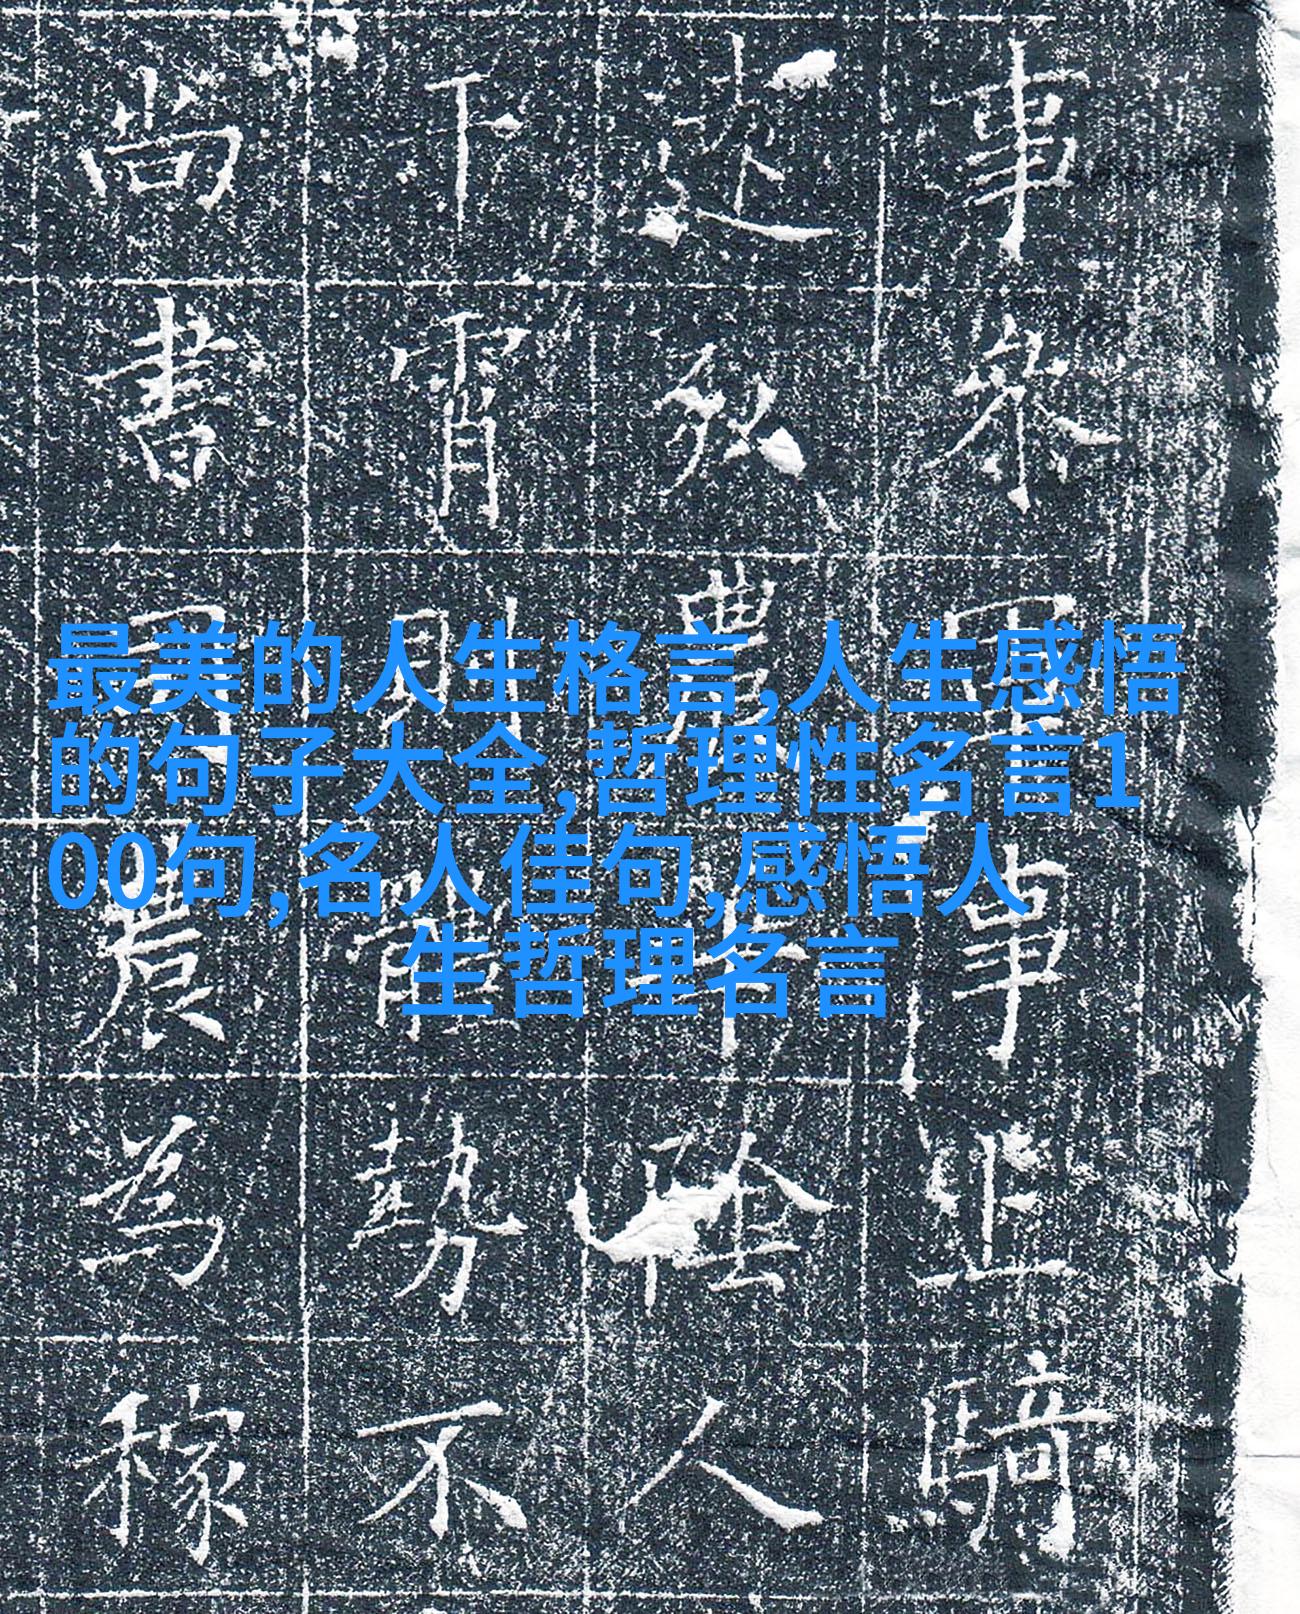 事參軍事上騎
弘農華陰人
下霄則體勢不
尚書司農為稼
最美的人生格言,人生感悟
的句子大全,哲理性名言1
00句,名人佳句,感悟人
生哲理名言